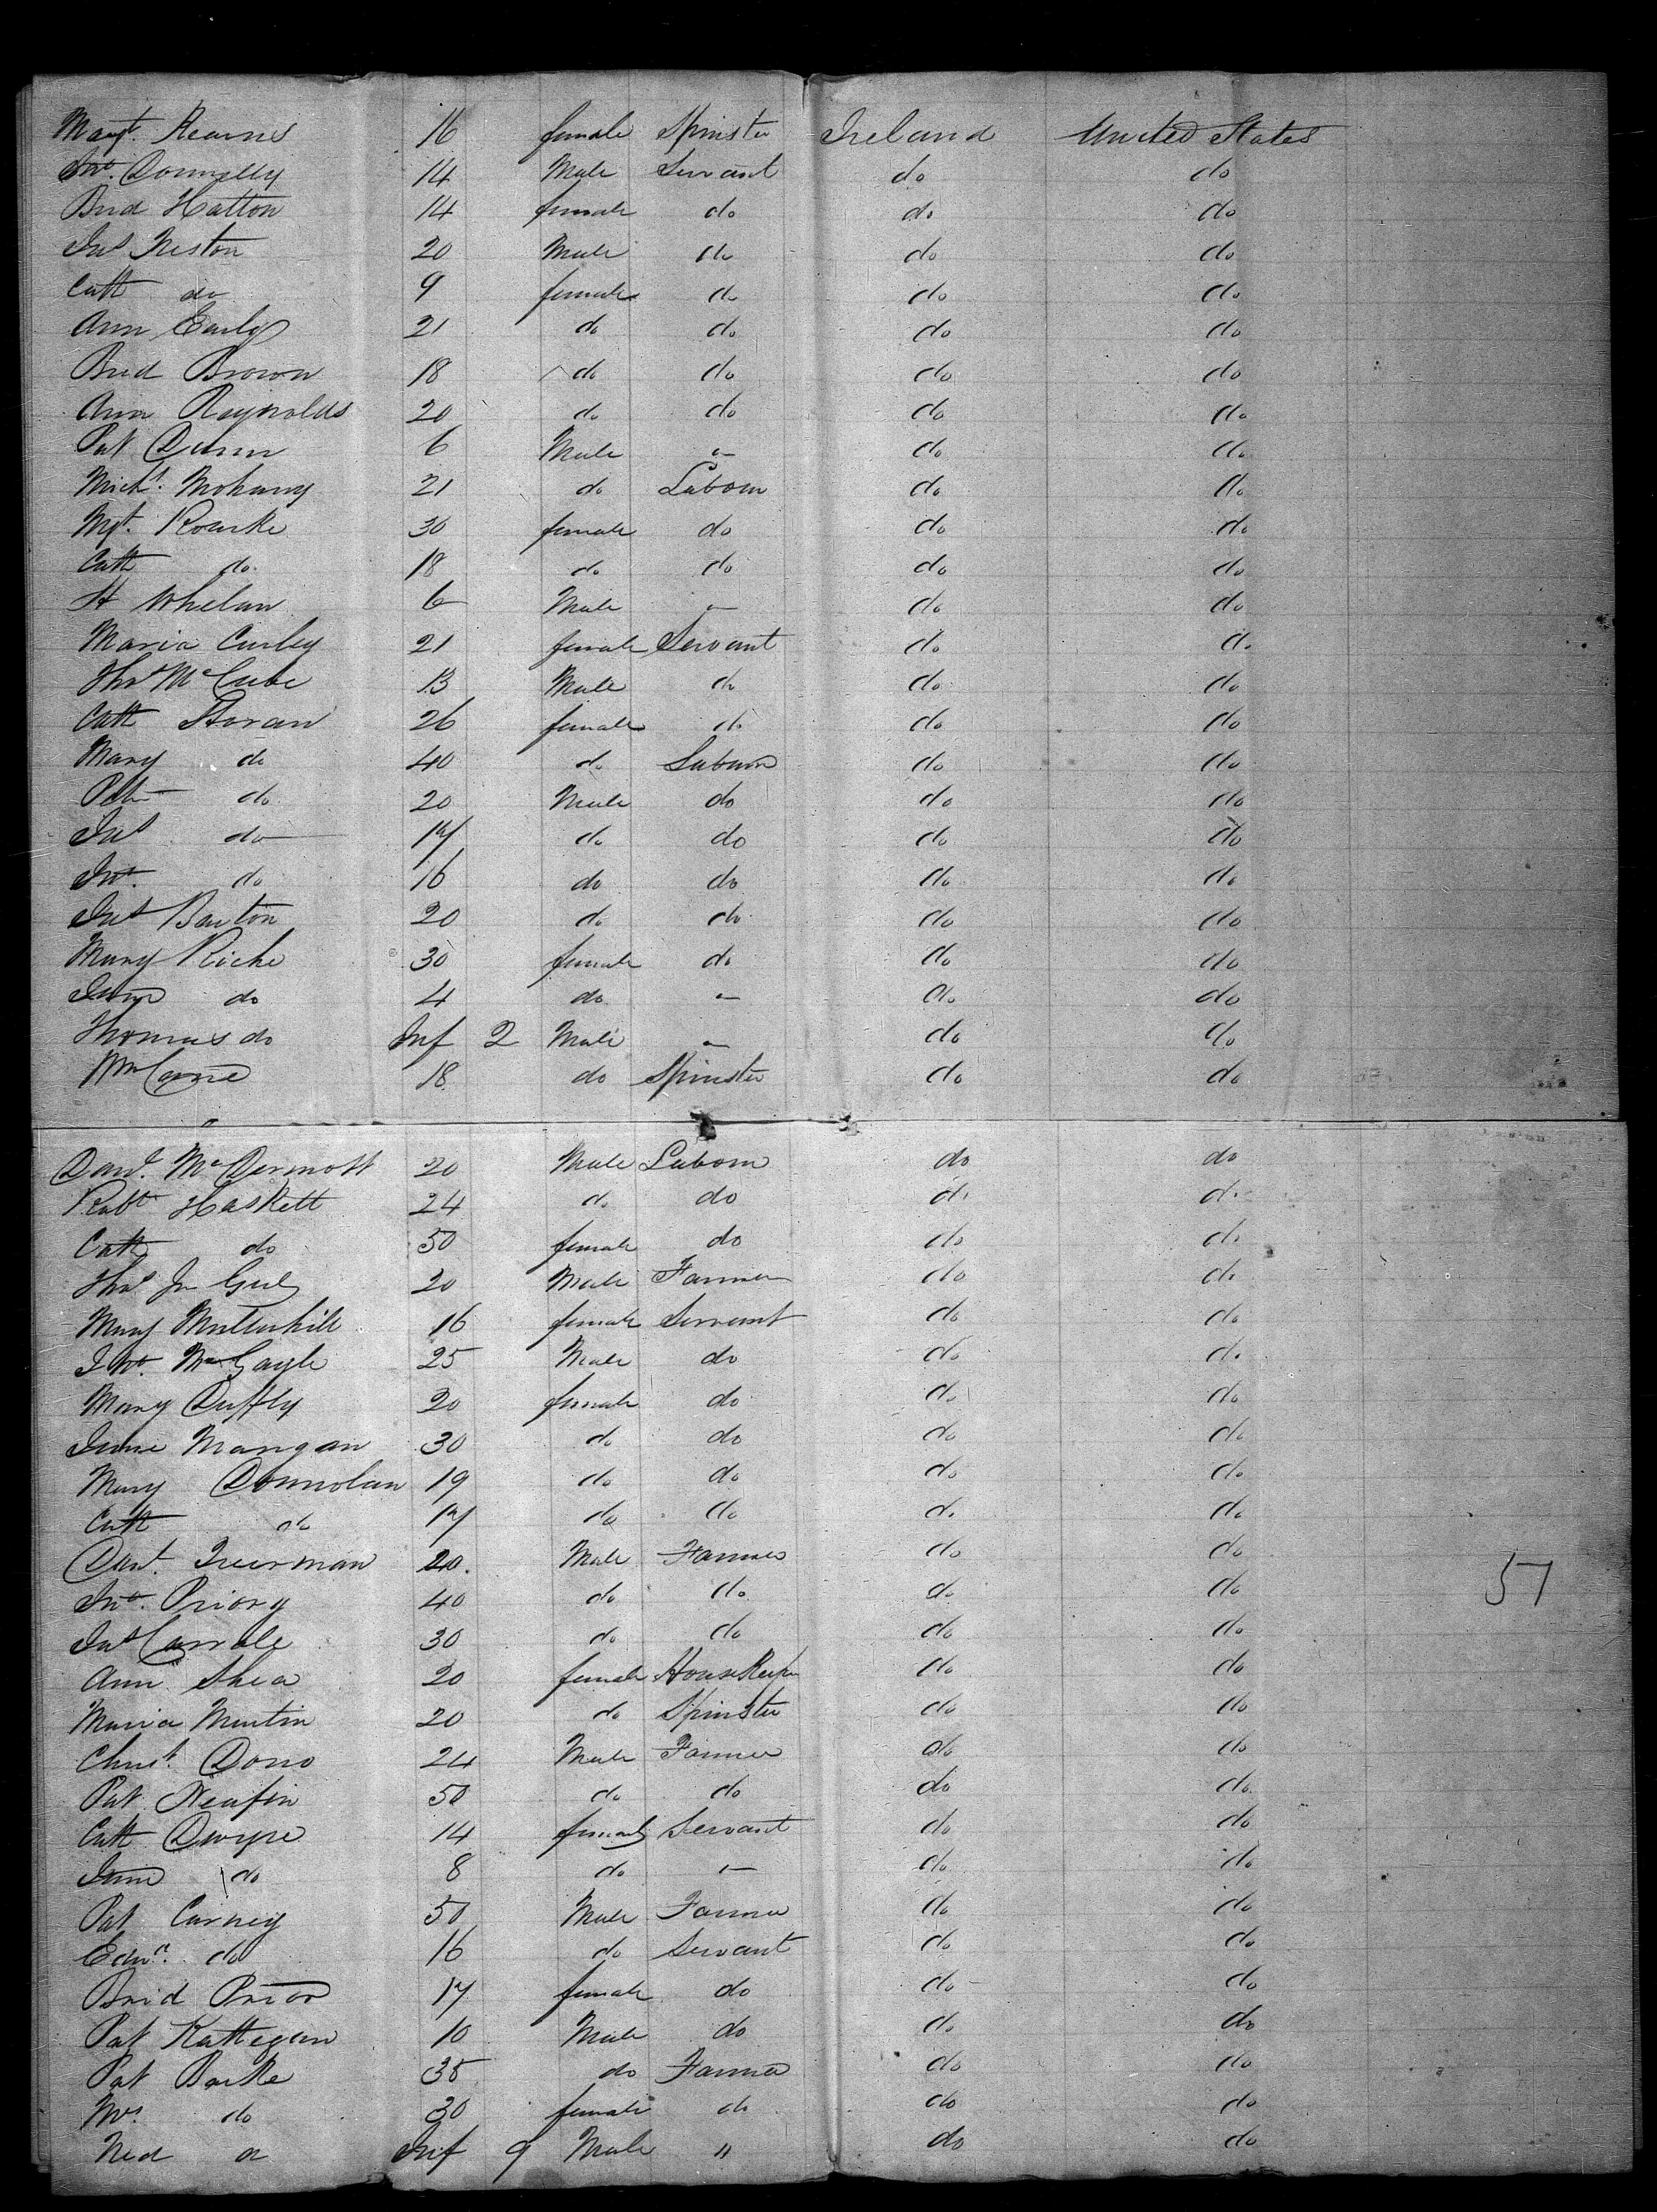 Margt. Kearns 16 female Spinster Ireland United States
Jno. Donnelly 14 Male Servant do do
Brid Hatton 14 female do do do
Jas 20 Male do do do
Cath do 9 female do do do
Ann Early 21 do do do do
Brid Brown 18 do do do do
Ann Reynolds 20 do do do do
Pat Dunn 6 Male " do do
Michl. Mohany 21 do Labour do do
Mgt. Rourke 30 female do do do
Cath do 18 do do do do
H Whelan 6 Male " do do
Maria Curley 21 female Servant do do
Thos McCabe 13 Male do do do
Cath 26 female do do do
Mary do 40 do Labour do do
Peter do 20 Male do do do
Jas do 17 do do do do
Jno. do 16 do do do do
Jas Barton 20 do do do do
Mary 30 female do do do
Jane do 4 do " do do
Thomas do Inf 2 Male " do do
Wm 18 do Spinster do do
Danl. McDermott 20 Male Labour do do
Robt Haskett 24 do do do do
Cath do 50 female do do do
Thos 20 Male Farmer do do
Mary 16 female Servant do do
Jno. 25 Male do do do
Mary Duffly 20 female do do do
Jane Mangan 30 do do do do
Mary Donnolan 19 do do do do
Cath do 17 do do do do
20. Male Farmer do do
Jno. Priory 40 do do do do
Jas 30 do do do do
57
Ann Shea 20 female HouseKeeper do do
Maria Martin 20 do Spinster do do
Christ. 24 Male Farmer do do
Pat 50 do do do do
Cath Dwyre 14 female Servant do do
Jane do 8 do " do do
Pat Carney 50 Male Farmer do do
Edwd. do 16 do Servant do do
Brid Prior 17 female do do do
Pat Kattegan 10 Male do do do
Pat Barke 35 do Farmer do do
Mrs. do 30 female do do do
Ned do Inf 9 Male " do do